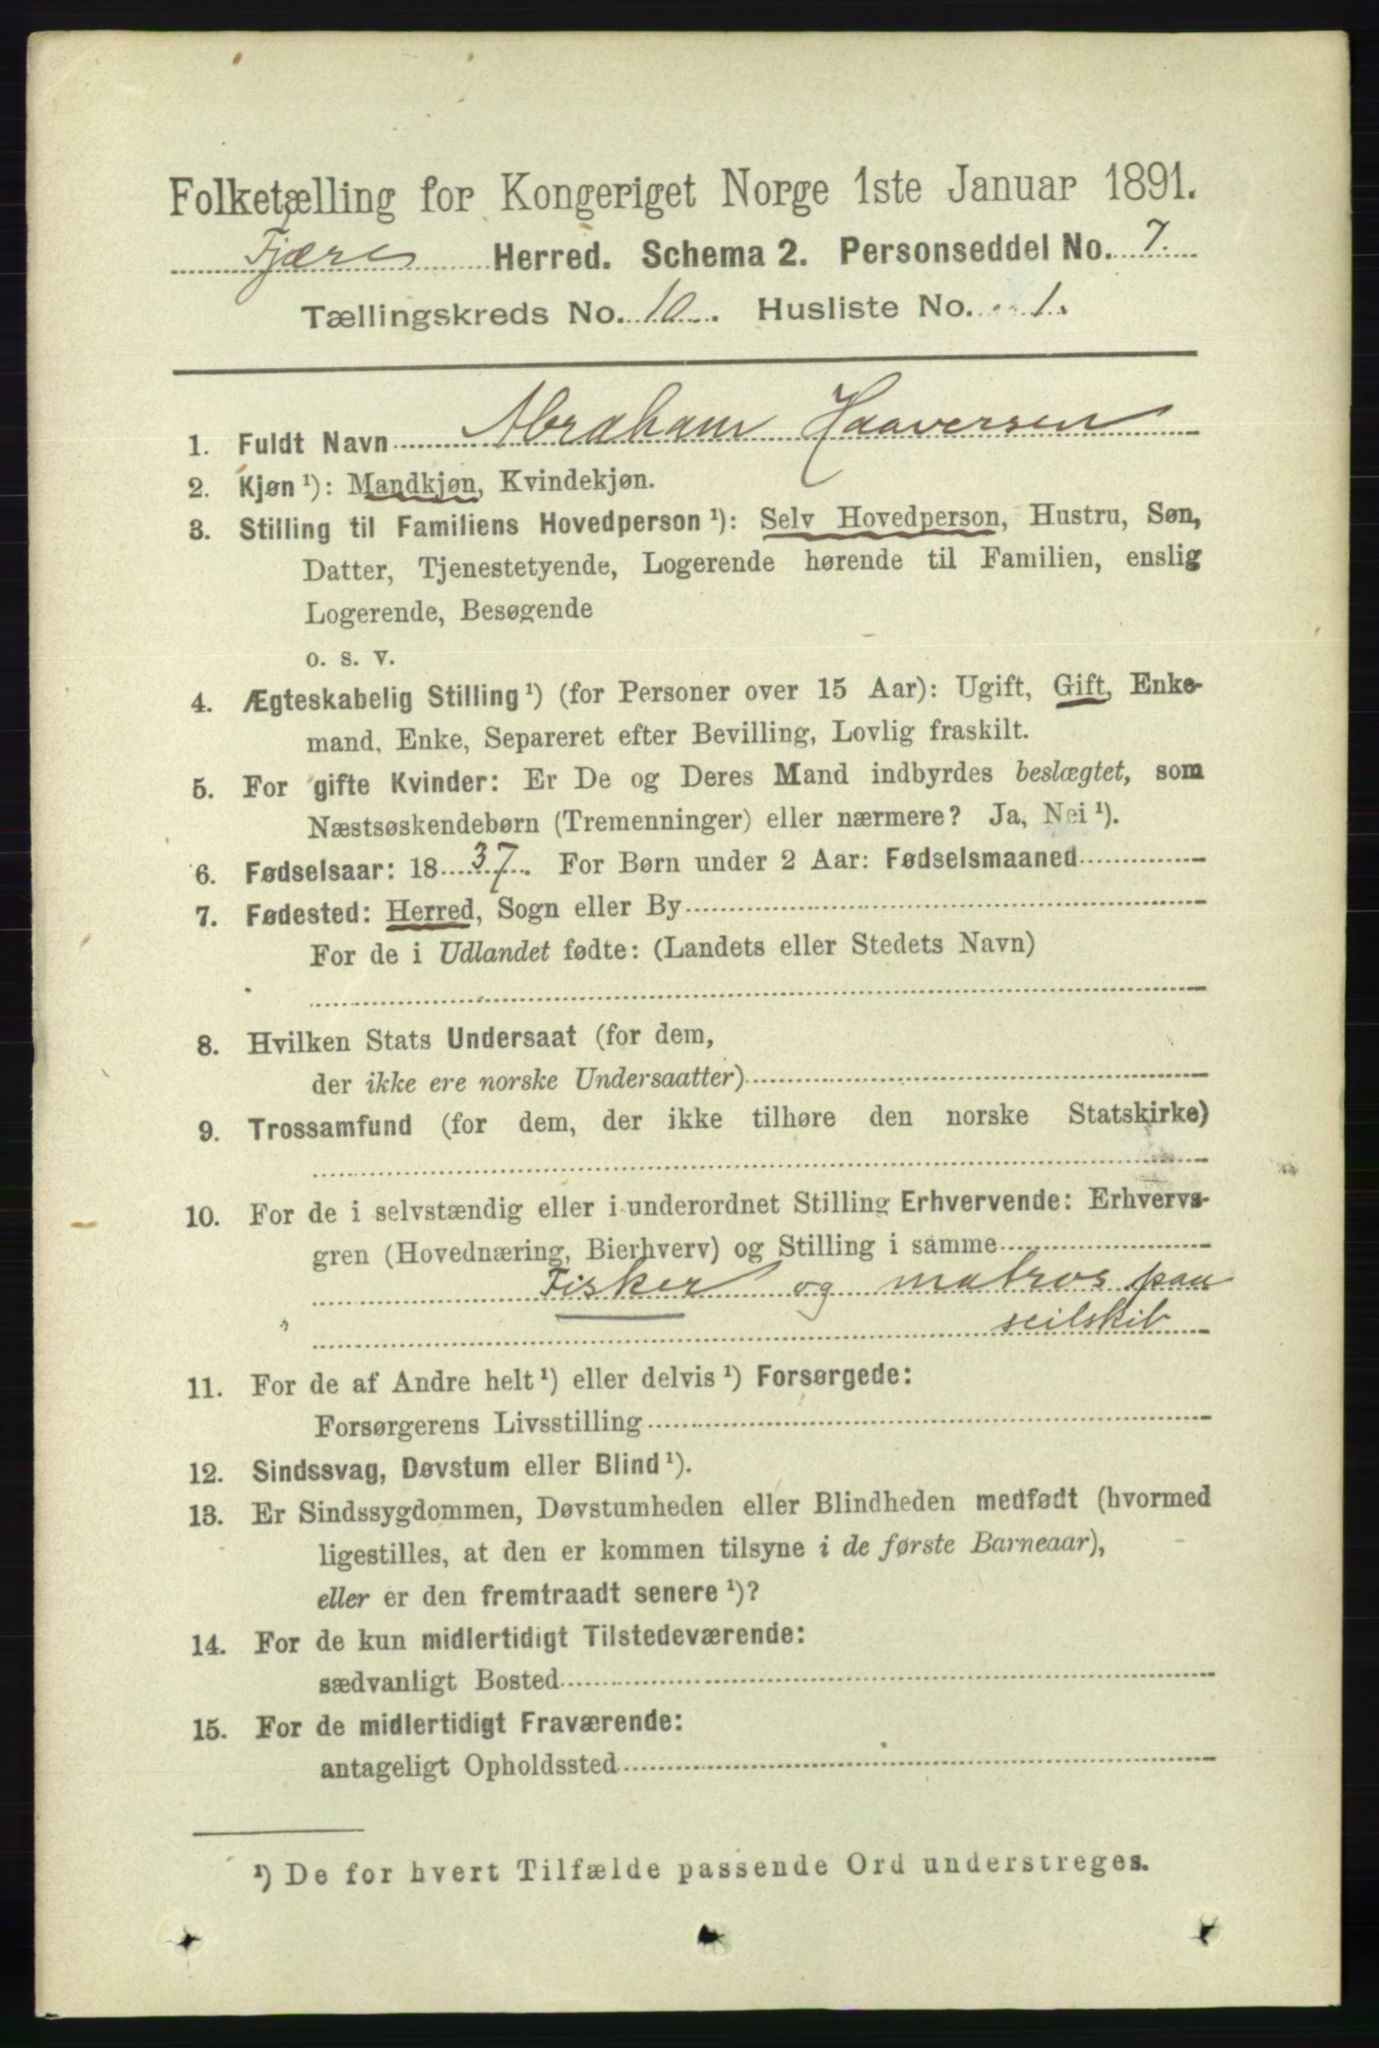 Folketælling for Kongeriget Norge 1ste Januar 1891.
Fjære Herred. Schema 2. Personseddel No. 7.
Tællingskreds No. 10. Husliste No. 1.
1. Fuldt Navn Abraham Haaversen
2. Kjøn ¹): Mandkjøn, Kvindekjøn.
3. Stilling til Familiens Hovedperson ¹): Selv Hovedperson, Hustru, Søn,
Datter, Tjenestetyende, Logerende hørende til Familien, enslig
Logerende, Besøgende
o. s. v.
4. Ægteskabelig Stilling ¹) (for Personer over 15 Aar): Ugift, Gift, Enke-
mand, Enke, Separeret efter Bevilling, Lovlig fraskilt.
5. For gifte Kvinder: Er De og Deres Mand indbyrdes beslægtet, som
Næstsøskendebørn (Tremenninger) eller nærmere? Ja, Nei ¹).
6. Fødselsaar: 1837. For Børn under 2 Aar: Fødselsmaaned
7. Fødested: Herred, Sogn eller By
For de i Udlandet fødte: (Landets eller Stedets Navn)
8. Hvilken Stats Undersaat (for dem,
der ikke ere norske Undersaatter)
9. Trossamfund (for dem, der ikke tilhøre den norske Statskirke)
10. For de i selvstændig eller i underordnet Stilling Erhvervende: Erhvervs-
gren (Hovednæring, Bierhverv) og Stilling i samme
Fisker og matros paa
seilskib
11. For de af Andre helt ¹) eller delvis ¹) Forsørgede:
Forsørgerens Livsstilling
12. Sindssvag, Døvstum eller Blind ¹).
13. Er Sindssygdommen, Døvstumheden eller Blindheden medfødt (hvormed
ligestilles, at den er kommen tilsyne i de første Barneaar),
eller er den fremtraadt senere ¹)?
14. For de kun midlertidigt Tilstedeværende:
sædvanligt Bosted
15. For de midlertidigt Fraværende:
antageligt Opholdssted
¹) De for hvert Tilfælde passende Ord understreges.